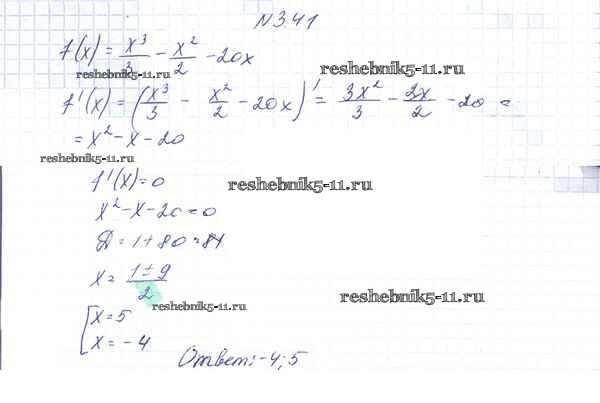 №3.41
f(x) = x³/3 − x²/2 − 20x
reshebnik5-11.ru
reshebnik5-11.ru
f'(x) = (x³/3 − x²/2 − 20x)' = 3x²/3 − 2x/2 − 20 =
reshebnik5-11.ru
= x² − x − 20
reshebnik5-11.ru
f'(x) = 0
reshebnik5-11.ru
x² − x − 20 = 0
Д = 1 + 80 = 81
x = 1 ± 9 / 2
reshebnik5-11.ru
reshebnik5-11.ru
[ x = 5
x = − 4
Ответ: −4; 5